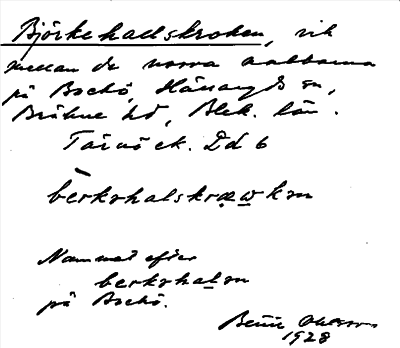 Björkehalskroken, vik
mellan de norra uddarna
på Bockö, Hällaryds sn,
Bräkne hd, Blek. län.
Tärnö ek. Dd 6
bērkrhalskræwkrn
Namnet efter
berkrhalsn
på Bockö.
Bertil Ohlsson
1928